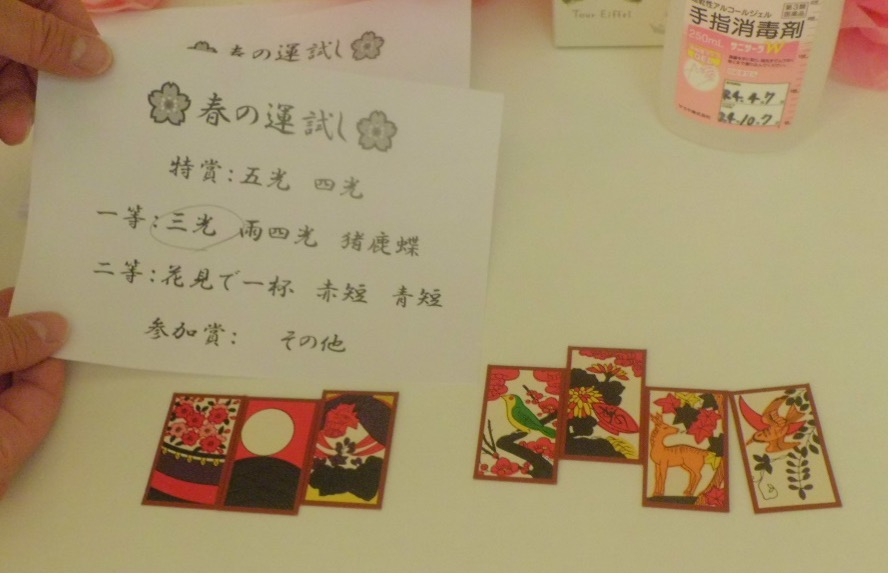 春の運試し
春の運試し
特賞:五光 四光
一等:三光 雨四光 猪鹿蝶
二等:花見で一杯 赤短 青短
参加賞: その他
Tour Eiffel
アルコールジェル
第3類
医薬品
手指消毒剤
250mL サニサーラW
24.4.7
24.10.7